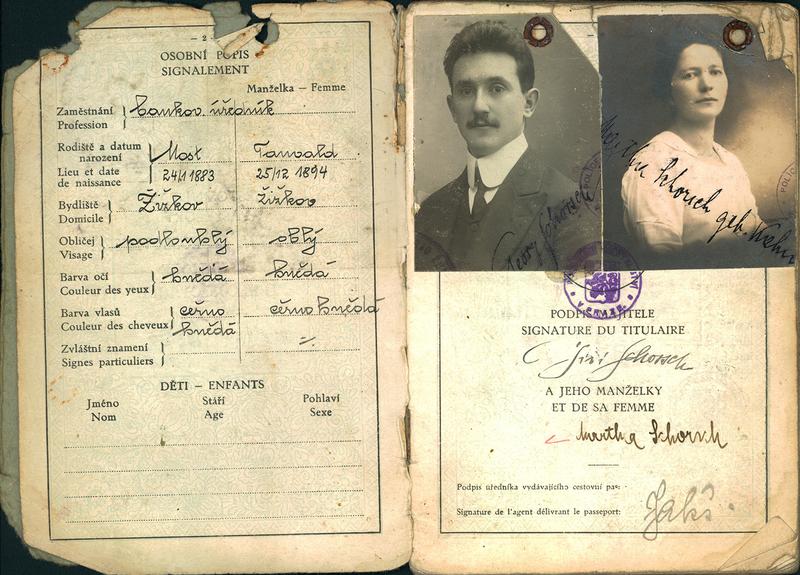 — 2 —
OSOBNÍ POPIS
SIGNALEMENT
Manželka — Femme
Zaměstnání
Profession
bankov. úředník
Rodiště a datum
narození
Lieu et date
de naissance
Most
24/1 1883
Tanvald
25/12 1894
Bydliště
Domicile
Žižkov
Žižkov
Obličej
Visage
podlouhlý
oblý
Barva očí
Couleur des yeux
hnědá
hnědá
Barva vlasů
Couleur des cheveux
černo
hnědá
černo hnědá
Zvláštní znamení
Signes particuliers
DĚTI — ENFANTS
Jméno
Nom
Stáří
Age
Pohlaví
Sexe
Georg Schorsch
Martha Schorsch geb.
PODPIS MAJITELE
SIGNATURE DU TITULAIRE
Jiří Schorsch
A JEHO MANŽELKY
ET DE SA FEMME
Martha Schorsch
Podpis úředníka vydávajícího cestovní pas:
Signature de l'agent délivrant le passeport: